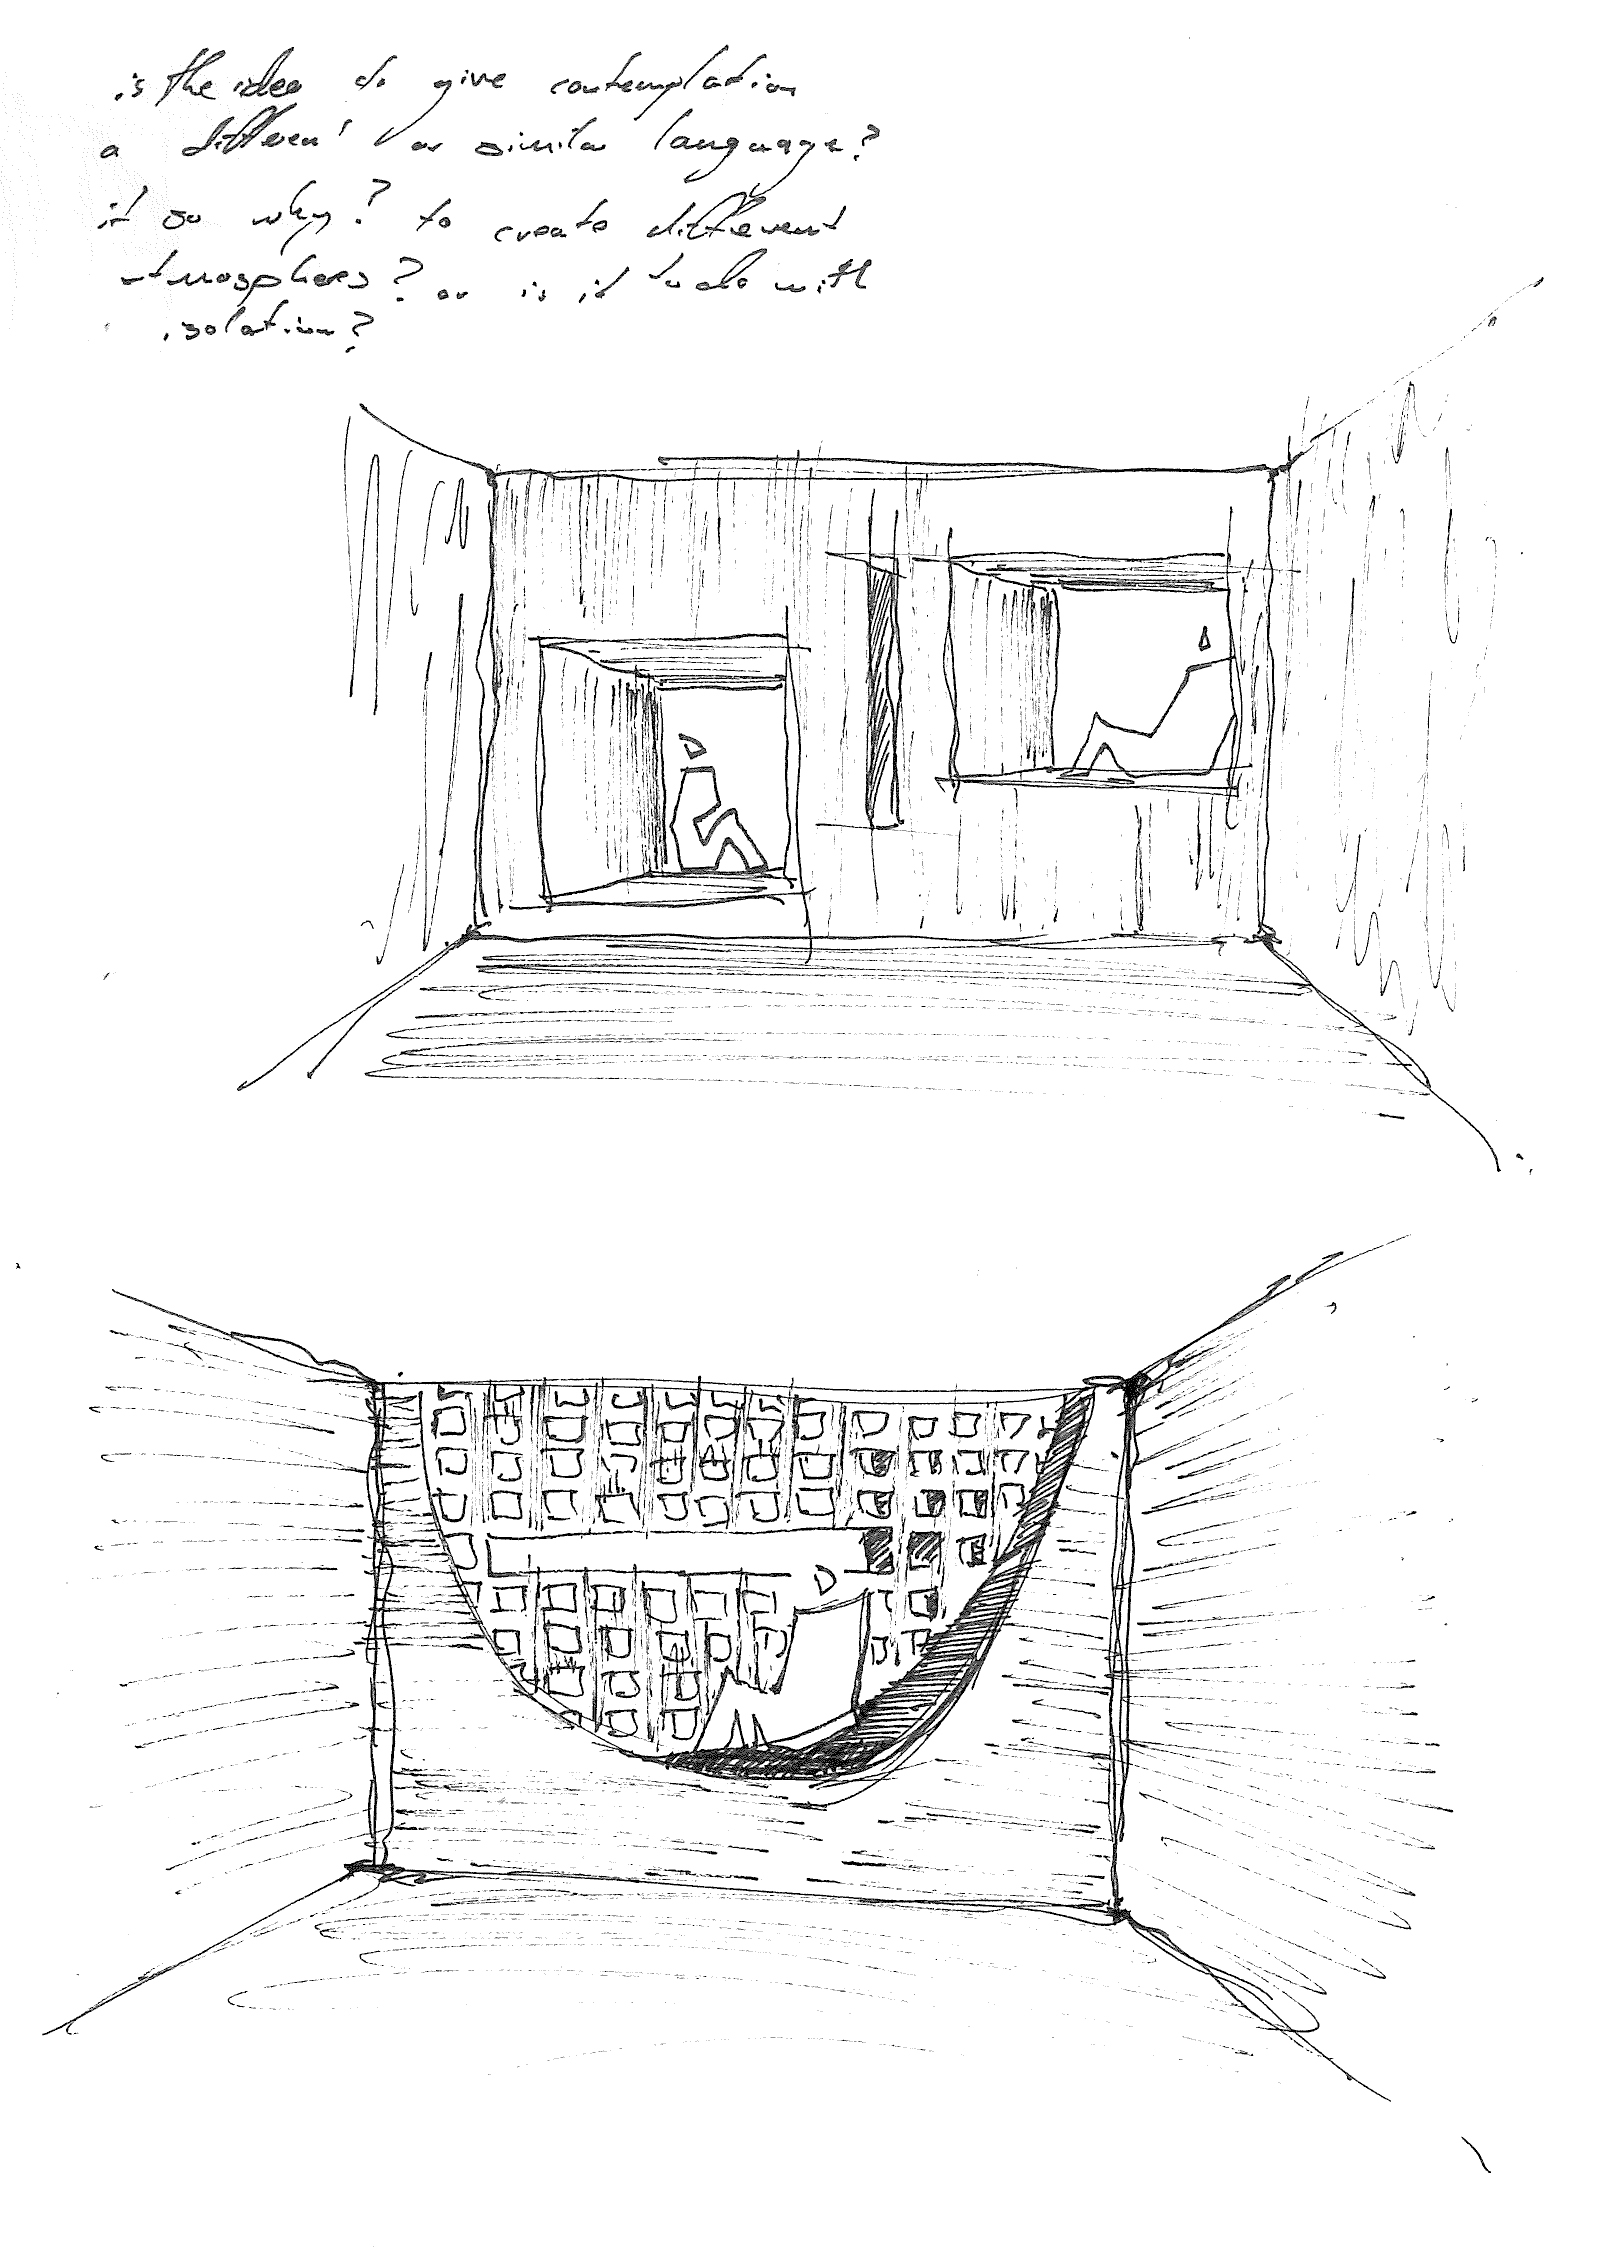 is the idea to give contemplation
a different or similar language?
if so why? to create different
atmospheres? or is it to do with
isolation?